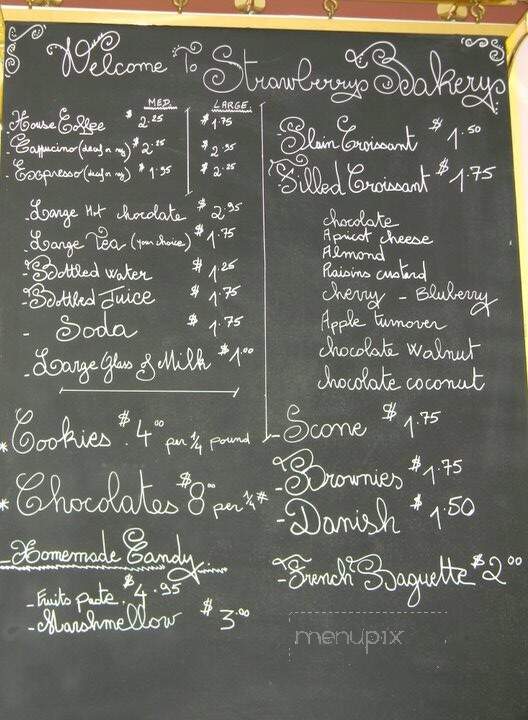 Welcome To Strawberry Bakery
MED. LARGE
House Coffee $2.25 $1.75
Cappucino (decaf or reg) $2.25 $2.95
Expresso (decaf or reg) $1.95 $2.25
- Large Hot chocolate $2.95
- Large Tea (your choice) $1.75
- Bottled water $1.25
- Bottled Juice $1.75
- Soda $1.75
- Large Glass of Milk $1.00
* Cookies $4.00 per 1/4 pound
* Chocolates $8.00 per 1/4 #
- Homemade Candy
- Fruits paste $4.95
- Marshmellow $3.00
- Plain Croissant $1.50
- Filled Croissant $1.75
chocolate
Apricot cheese
Almond
Raisins custard
cherry - Bluberry
Apple turnover
chocolate walnut
chocolate coconut
- Scone $1.75
- Brownies $1.75
- Danish $1.50
- French Baguette $2.00
menupix